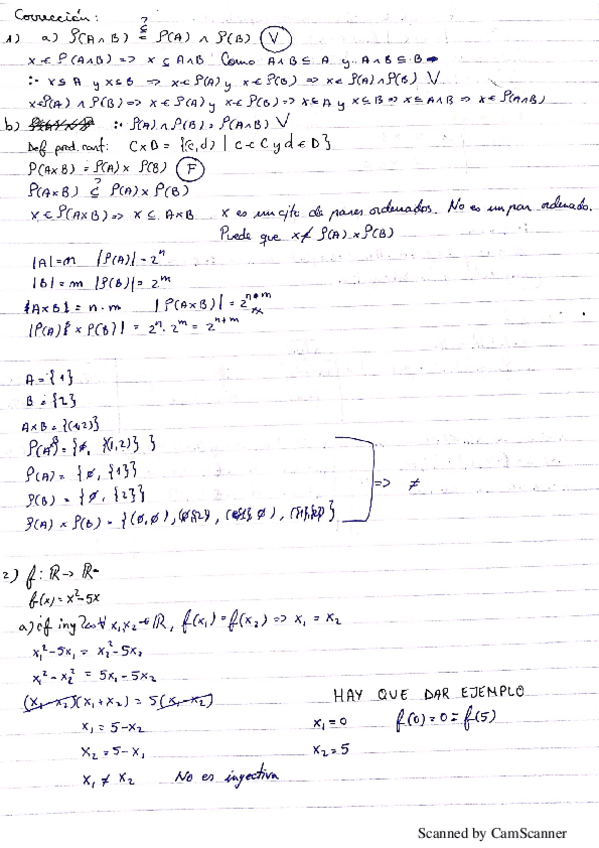 Corrección:
1) a) P(A∩B) ?= P(A) ∩ P(B) (V)
x ∈ P(A∩B) => x ⊆ A∩B Como A∩B ⊆ A y A∩B ⊆ B
∴ x ⊆ A y x ⊆ B => x ∈ P(A) y x ∈ P(B) => x ∈ P(A)∩P(B) V
x∈P(A) ∩ P(B) => x ∈ P(A) y x ∈ P(B) => x ⊆ A y x ⊆ B => x ⊆ A∩B => x ∈ P(A∩B)
b) ∴ P(A) ∩ P(B) = P(A∩B) V
Def prod. cart: C×D = {(c,d) | c ∈ C y d ∈ D}
P(A×B) = P(A) × P(B) (F)
P(A×B) ?⊆ P(A) × P(B)
x ∈ P(A×B) => x ⊆ A×B x es un cjto de pares ordenados. No es un par ordenado.
Puede que x ∉ P(A) × P(B)
|A|=n |P(A)| = 2^n
|B| = m |P(B)| = 2^m
|A×B| = n·m |P(A×B)| = 2^n·m
|P(A) × P(B)| = 2^n · 2^m = 2^n+m
A = {1}
B = {2}
A×B = {(1,2)}
P(A×B) = {ø, {(1,2)}}
P(A) = {ø, {1}}
P(B) = {ø, {2}} => ≠
P(A) × P(B) = {(ø,ø), (ø,{2}), ({1},ø), ({1},{2})}
2) f: ℝ → ℝ
f(x) = x²-5x
a) ¿f iny? ∀ x₁,x₂ ∈ ℝ, f(x₁) = f(x₂) => x₁ = x₂
x₁²-5x₁ = x₂²-5x₂
x₁²-x₂² = 5x₁-5x₂
(x₁-x₂)(x₁+x₂) = 5(x₁-x₂) HAY QUE DAR EJEMPLO
x₁ = 5-x₂ x₁=0 f(0)=0=f(5)
x₂ = 5-x₁ x₂=5
x₁ ≠ x₂ No es inyectiva
Scanned by CamScanner